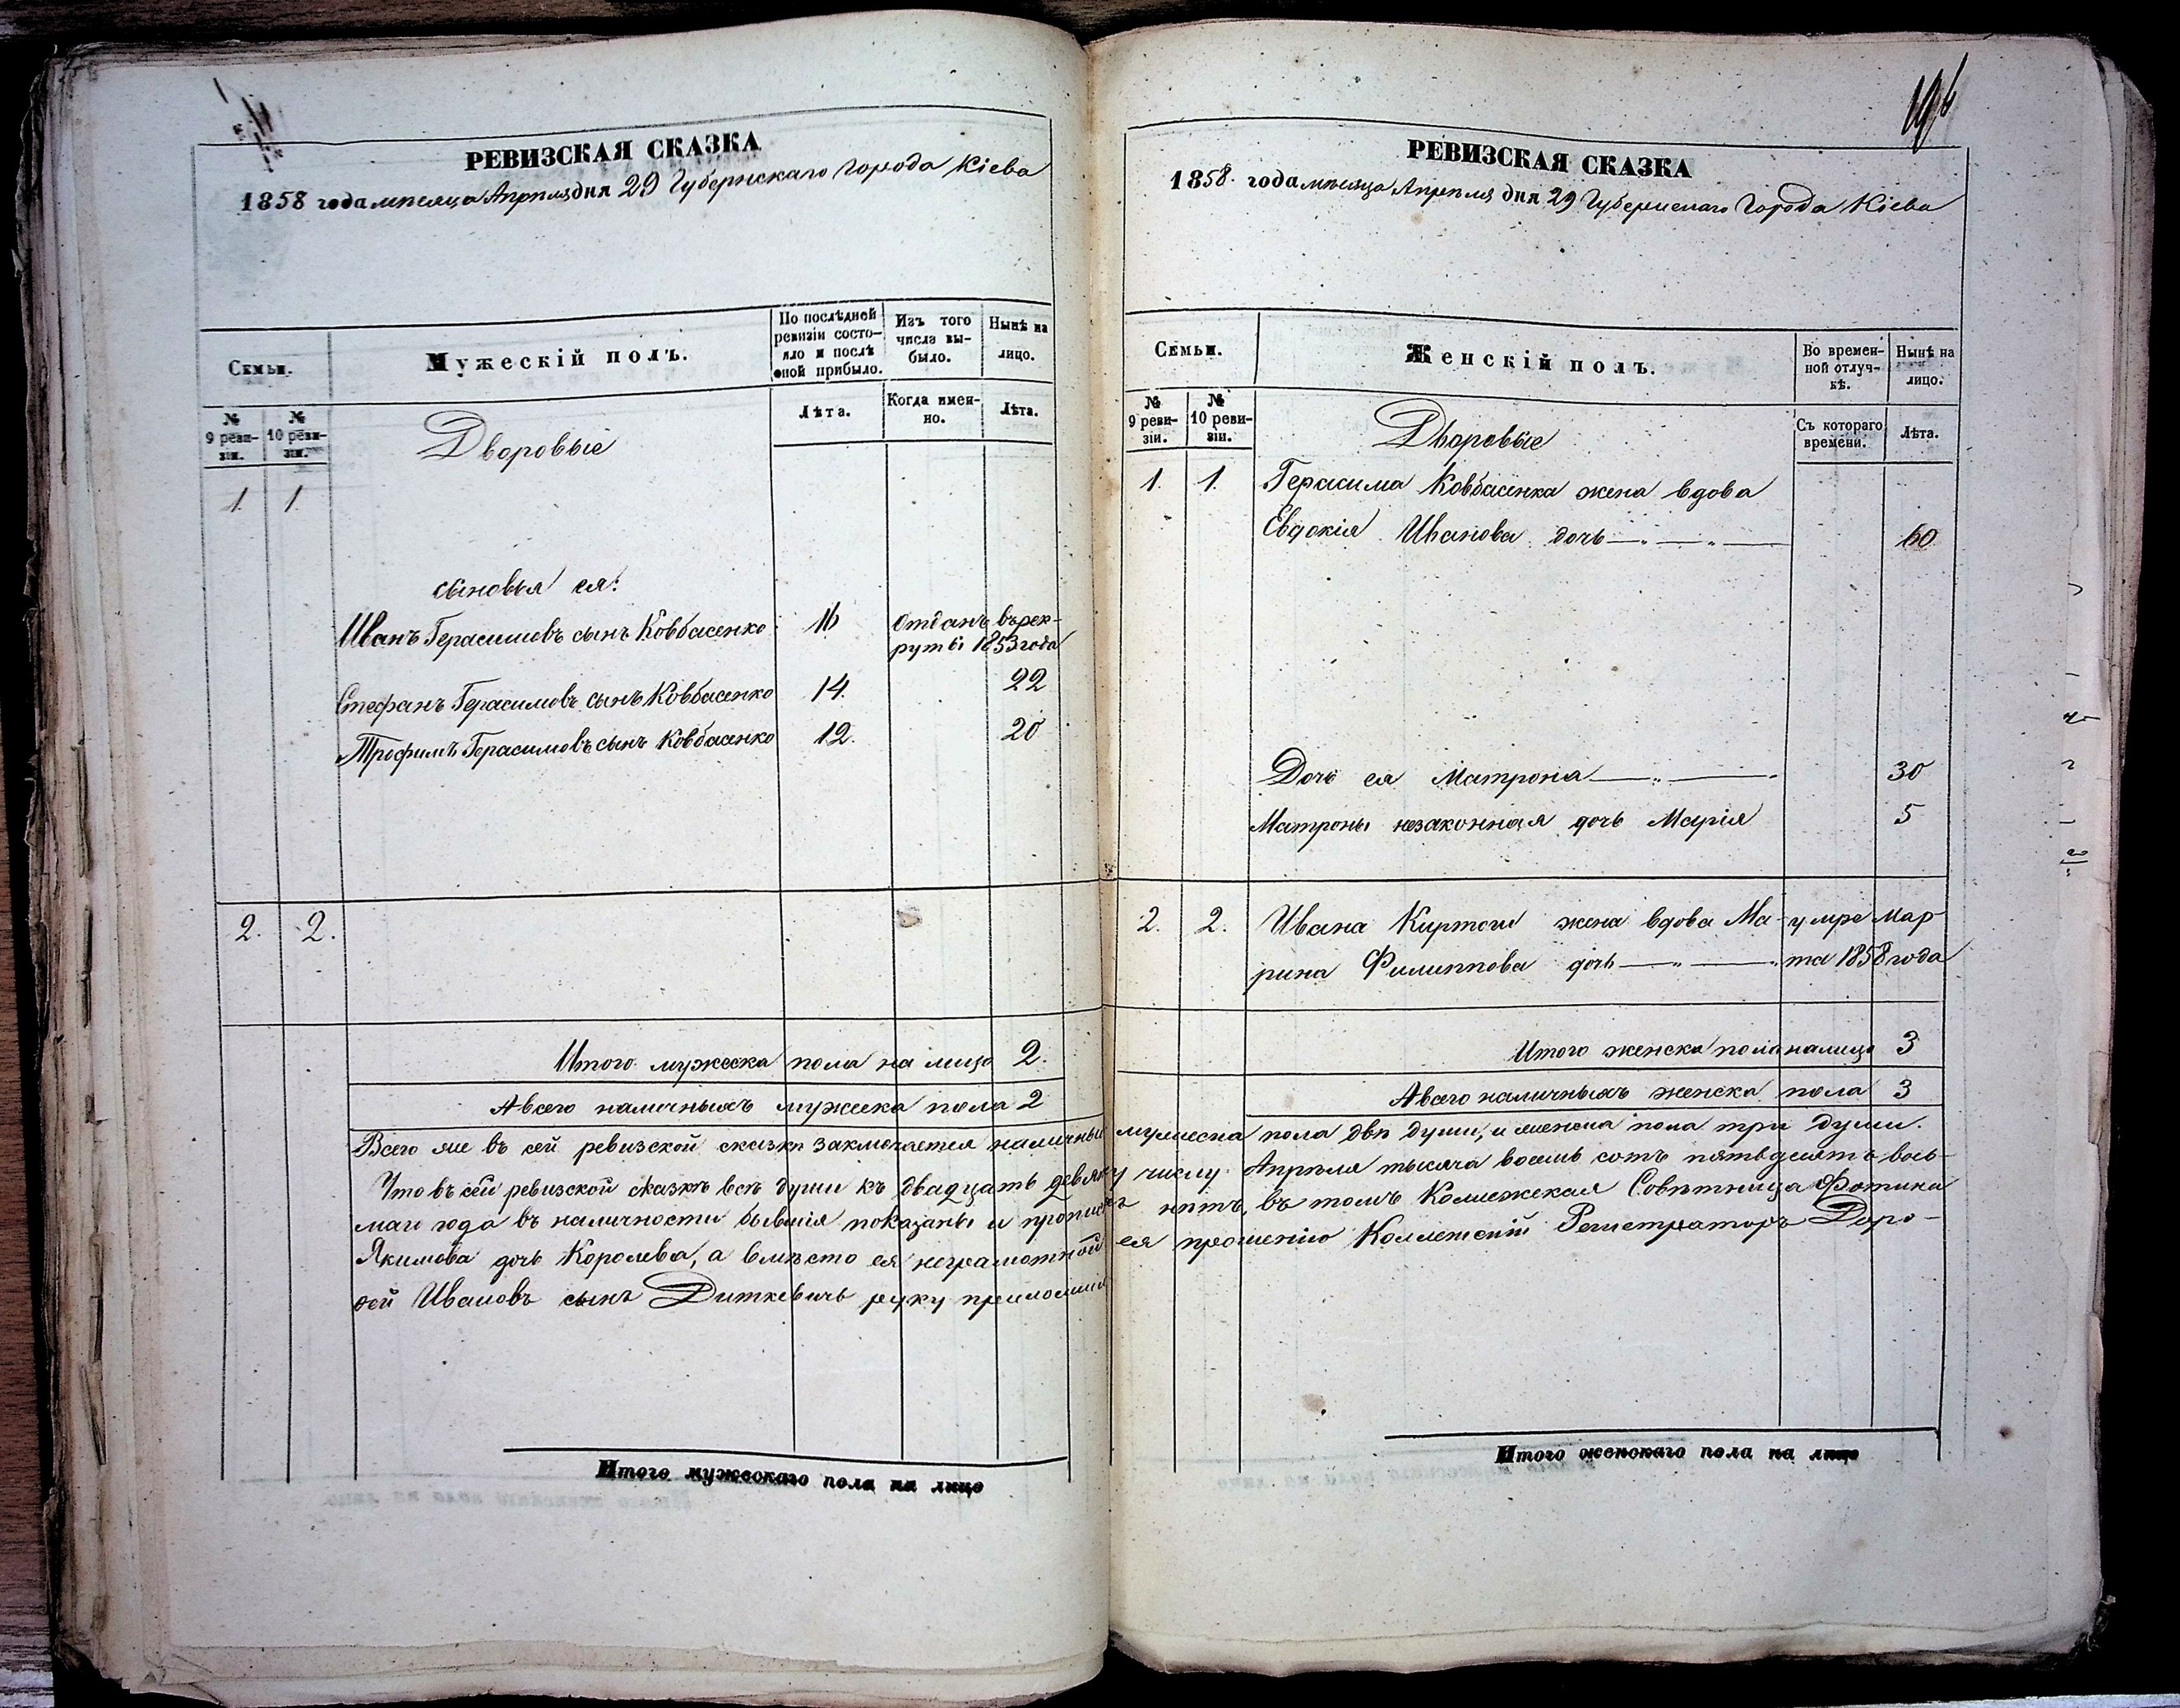 РЕВИЗСКАЯ СКАЗКА
1858 года мѣсяца Апрѣля дня 29 Губернскаго Города Кіева
Семьи.
Мужескій полъ.
По послѣдней ревизіи состояло и послѣ оной прибыло.
Изъ того числа выбыло.
Нынѣ на лицо.
№ 9 ревизіи.
№ 10 ревизіи.
Лѣта.
Когда именно.
Лѣта.
Дворовые
1. 1.
сыновья ея:
Иванъ Герасимовъ сынъ Ковбасенко 16 Отданъ въ рек-
руты 1853 года
Стефанъ Герасимовъ сынъ Ковбасенко 14. 22
Трофимъ Герасимовъ сынъ Ковбасенко 12. 20
2. 2.
Итого мужеска пола на лицо 2.
А всего наличныхъ мужеска пола 2
РЕВИЗСКАЯ СКАЗКА
1858 года мѣсяца Апрѣля дня 29 Губернскаго Города Кіева
Семьи.
Женскій полъ.
Во временной отлучкѣ.
Нынѣ на лицо.
№ 9 ревизіи.
№ 10 ревизіи.
Съ котораго времени.
Лѣта.
Дворовые
1. 1. Герасима Ковбасенка жена вдова
Евдокія Иванова дочь 60
Дочь ея Матрона 30
Матроны незаконная дочь Марія 5
2. 2. Ивана Киртоги жена вдова Ма- умре Мар-
рина Филиппова дочь та 1858 года
Итого женска пола налицо 3
А всего наличныхъ женска пола 3
Всего же въ сей ревизской сказкѣ заключается наличныхъ мужеска пола двѣ души, и женска пола три души.
Что въ сей ревизской сказкѣ всѣ души къ двадцать девятому числу Апрѣля тысяча восемь сотъ пятьдесятъ вось-
маго года въ наличности бывшія показаны и прописныхъ нѣтъ, въ томъ Коллежская Совѣтница Фотина
Якимова дочь Королева, а вмѣсто ея неграмотной ея прошенію Коллежскій Регистраторъ Доро-
фей Ивановъ сынъ Диткевичь руку приложилъ
Итого мужескаго пола на лицо
Итого женскаго пола на лицо